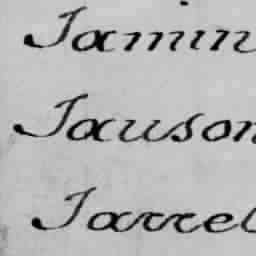 Jamin
Jauson
Jarrel